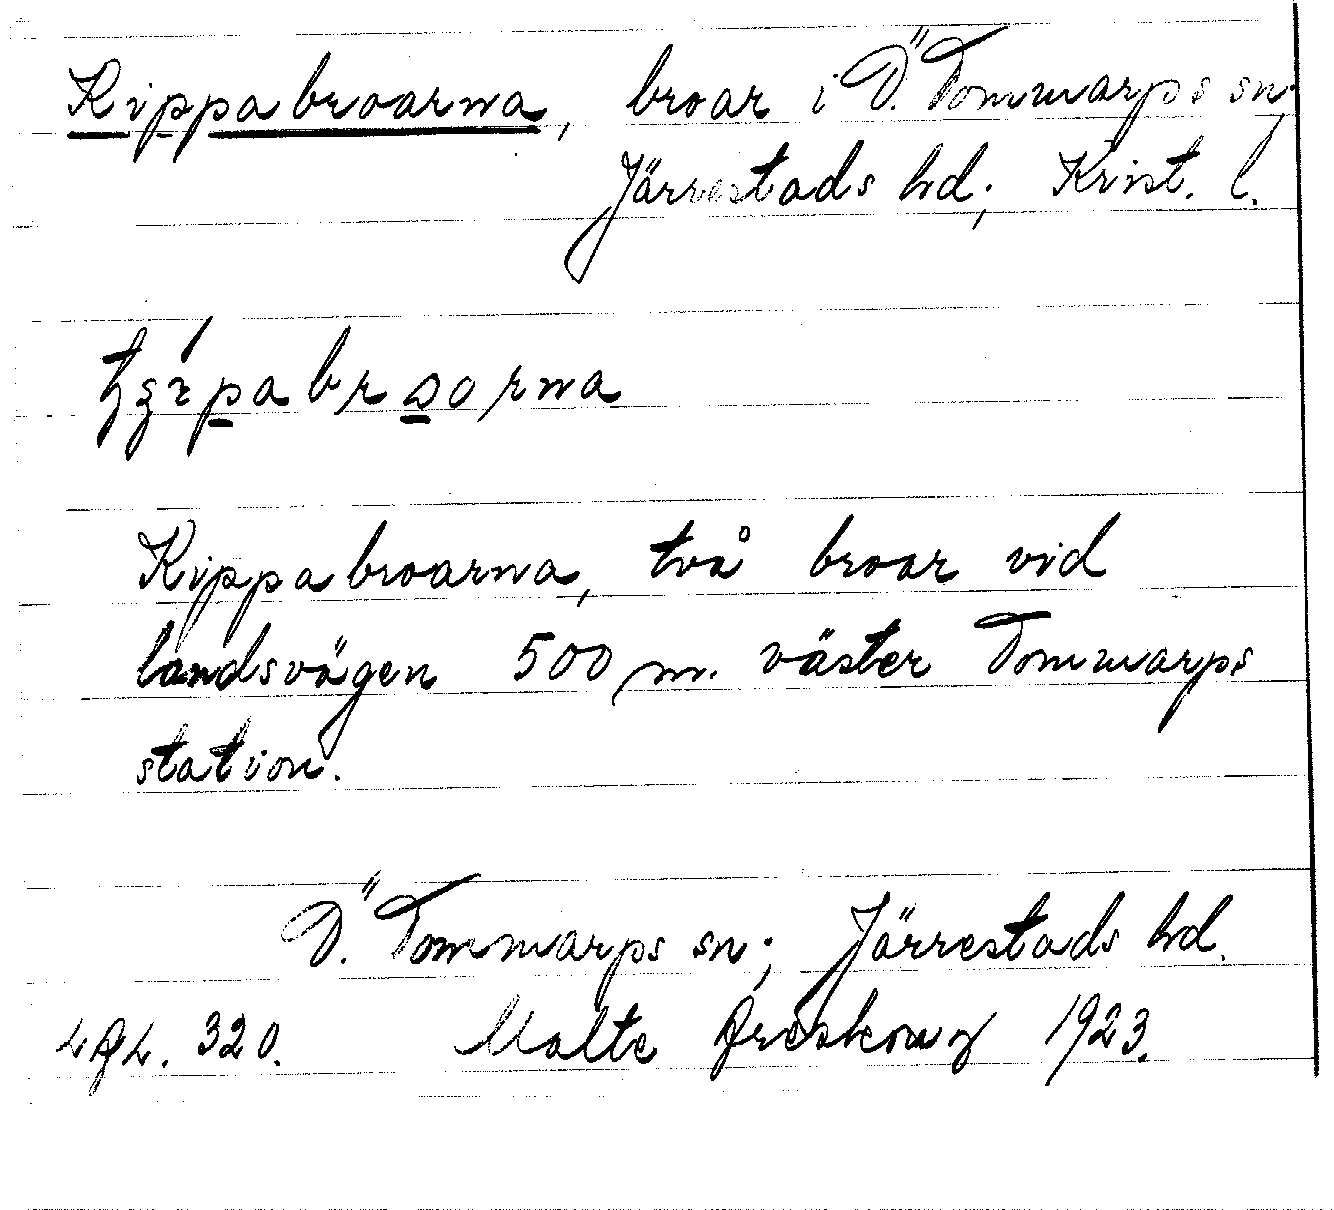 Kippabroarna, broar i Ö. Tommarps sn.
Järrestads hd; Krist. l.
Kippabroarna, två broar vid
landsvägen 500 m. väster Tommarps
station.
Ö. Tommarps sn; Järrestads hd.
320. Malte 1923.